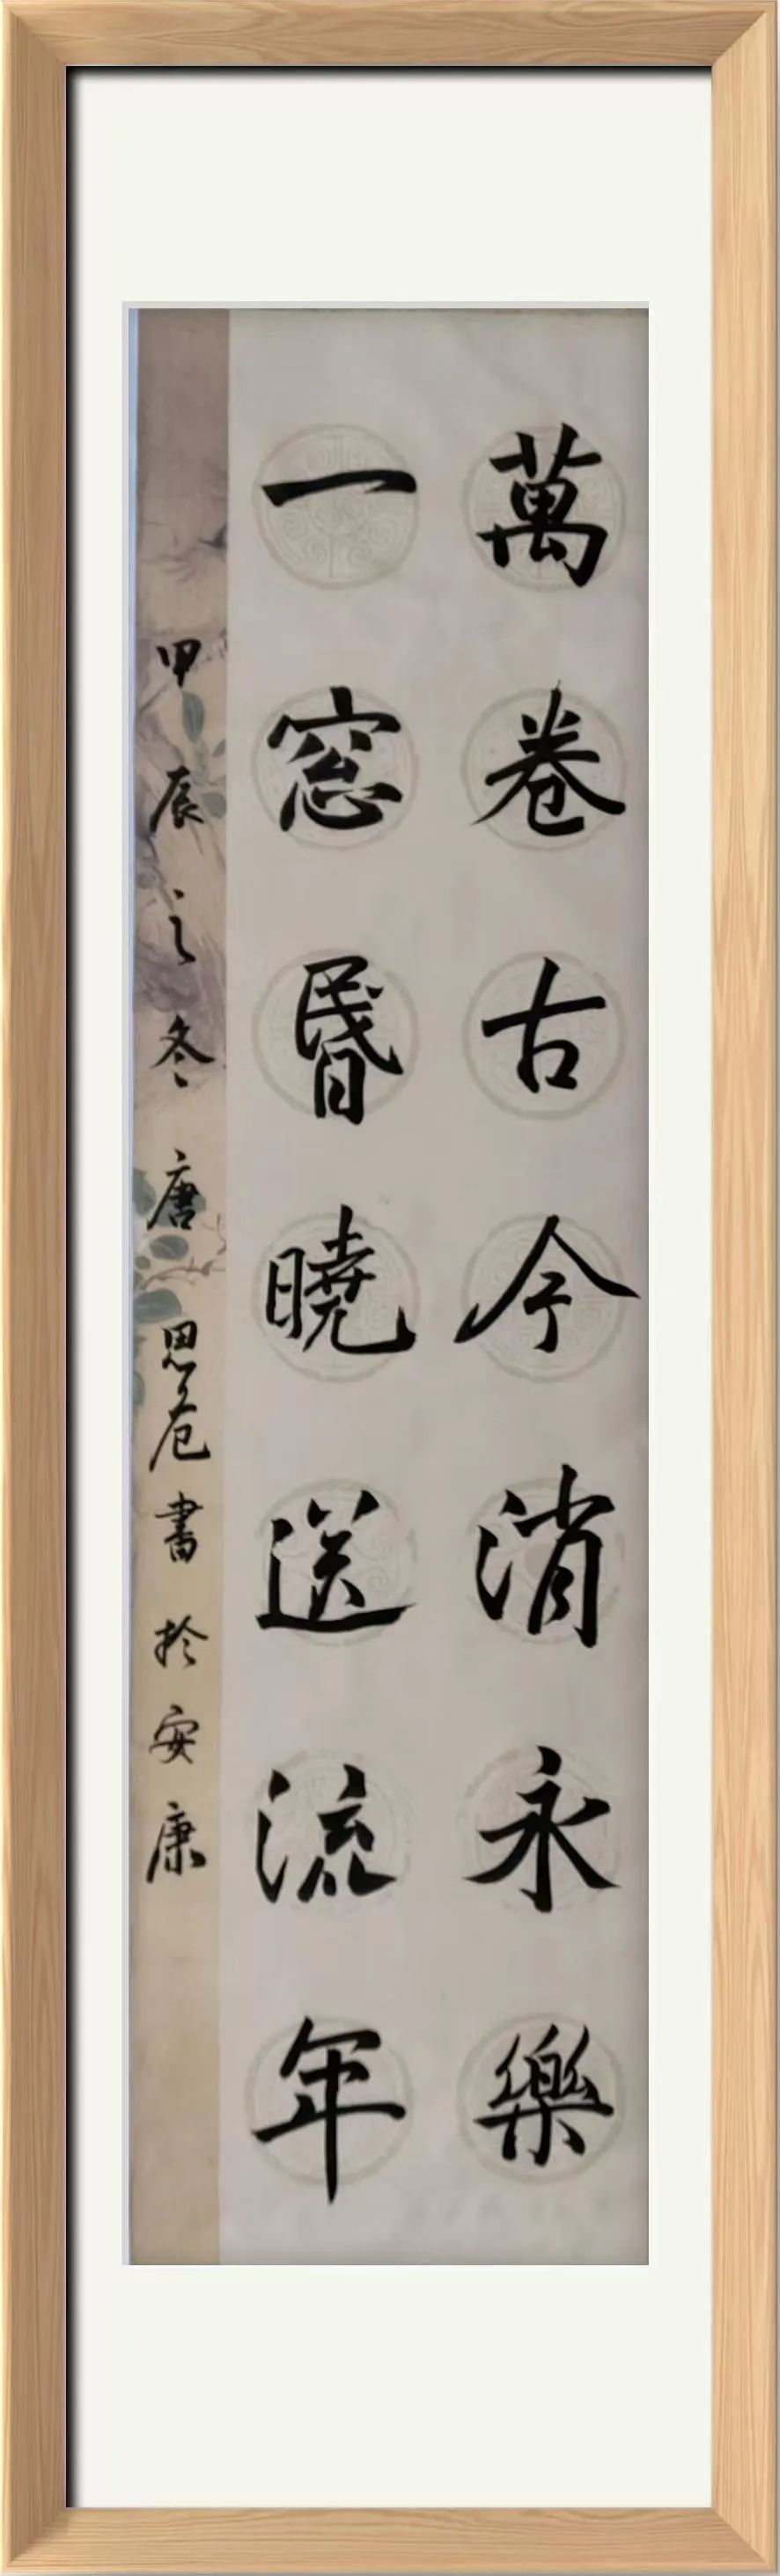 萬卷古今消永樂
一窓昬曉送流年
甲辰之冬唐思危書於安康